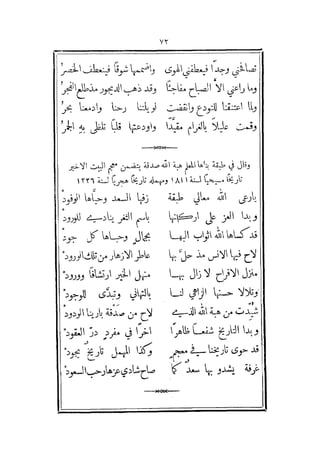 ٧٢
تصافحني وجدًا فيعطفني الهوى واضممها شوقًا فينعطف الخصرُ
وما راعني الا الصباح مفاجئًا وقد ذهب الديجور مذ طلع الفجرُ
ولما اعتنقنا للتودع وانقضت لويلتنا رحنا وادمعنا بحرُ
وقمت عليلاً بالغرام مقيَّدًا واودعتها قلبًا تلظى بهِ الجمرُ
وقال في طبقة بناها المعلم هبة الله صدقة يتضمن معجم البيت الاخير
تاريخًا مسيحيًا لسنة ١٨١١ ومهمله تاريخًا هجريًا لسنة ١٢٢٦
بارعى الله معالي طبقة زفها السعد وحيَّاها الوفود
وبدا العز على اركانها باسم الثغر يناديـ للورود
قد كساها الله اثواب البهـا بجمال وحباها كل جود
لاح فيها الانس مذ حلَّ بها عاطر الازهار من تلك الورود
منزل الافراح لا زال بهـا منهل الخير ارتشافًا وورود
وتلالا حسنها الزاهي لنـا بالتهاني وتبدَّى للوجود
شُيّدت من هبة الله الذي لاح من صدقة بارينا الودود
وبدا التاريخ شفعًا ظاهرًا اخرًا في مفردٍ درّ العقود
قد حوى تاريخنا في معجمٍ وكذا المهمل تاريخٌ يجود
غرفة يشدو بها سعدٌ كما صاح شادي عزها رحب السعود